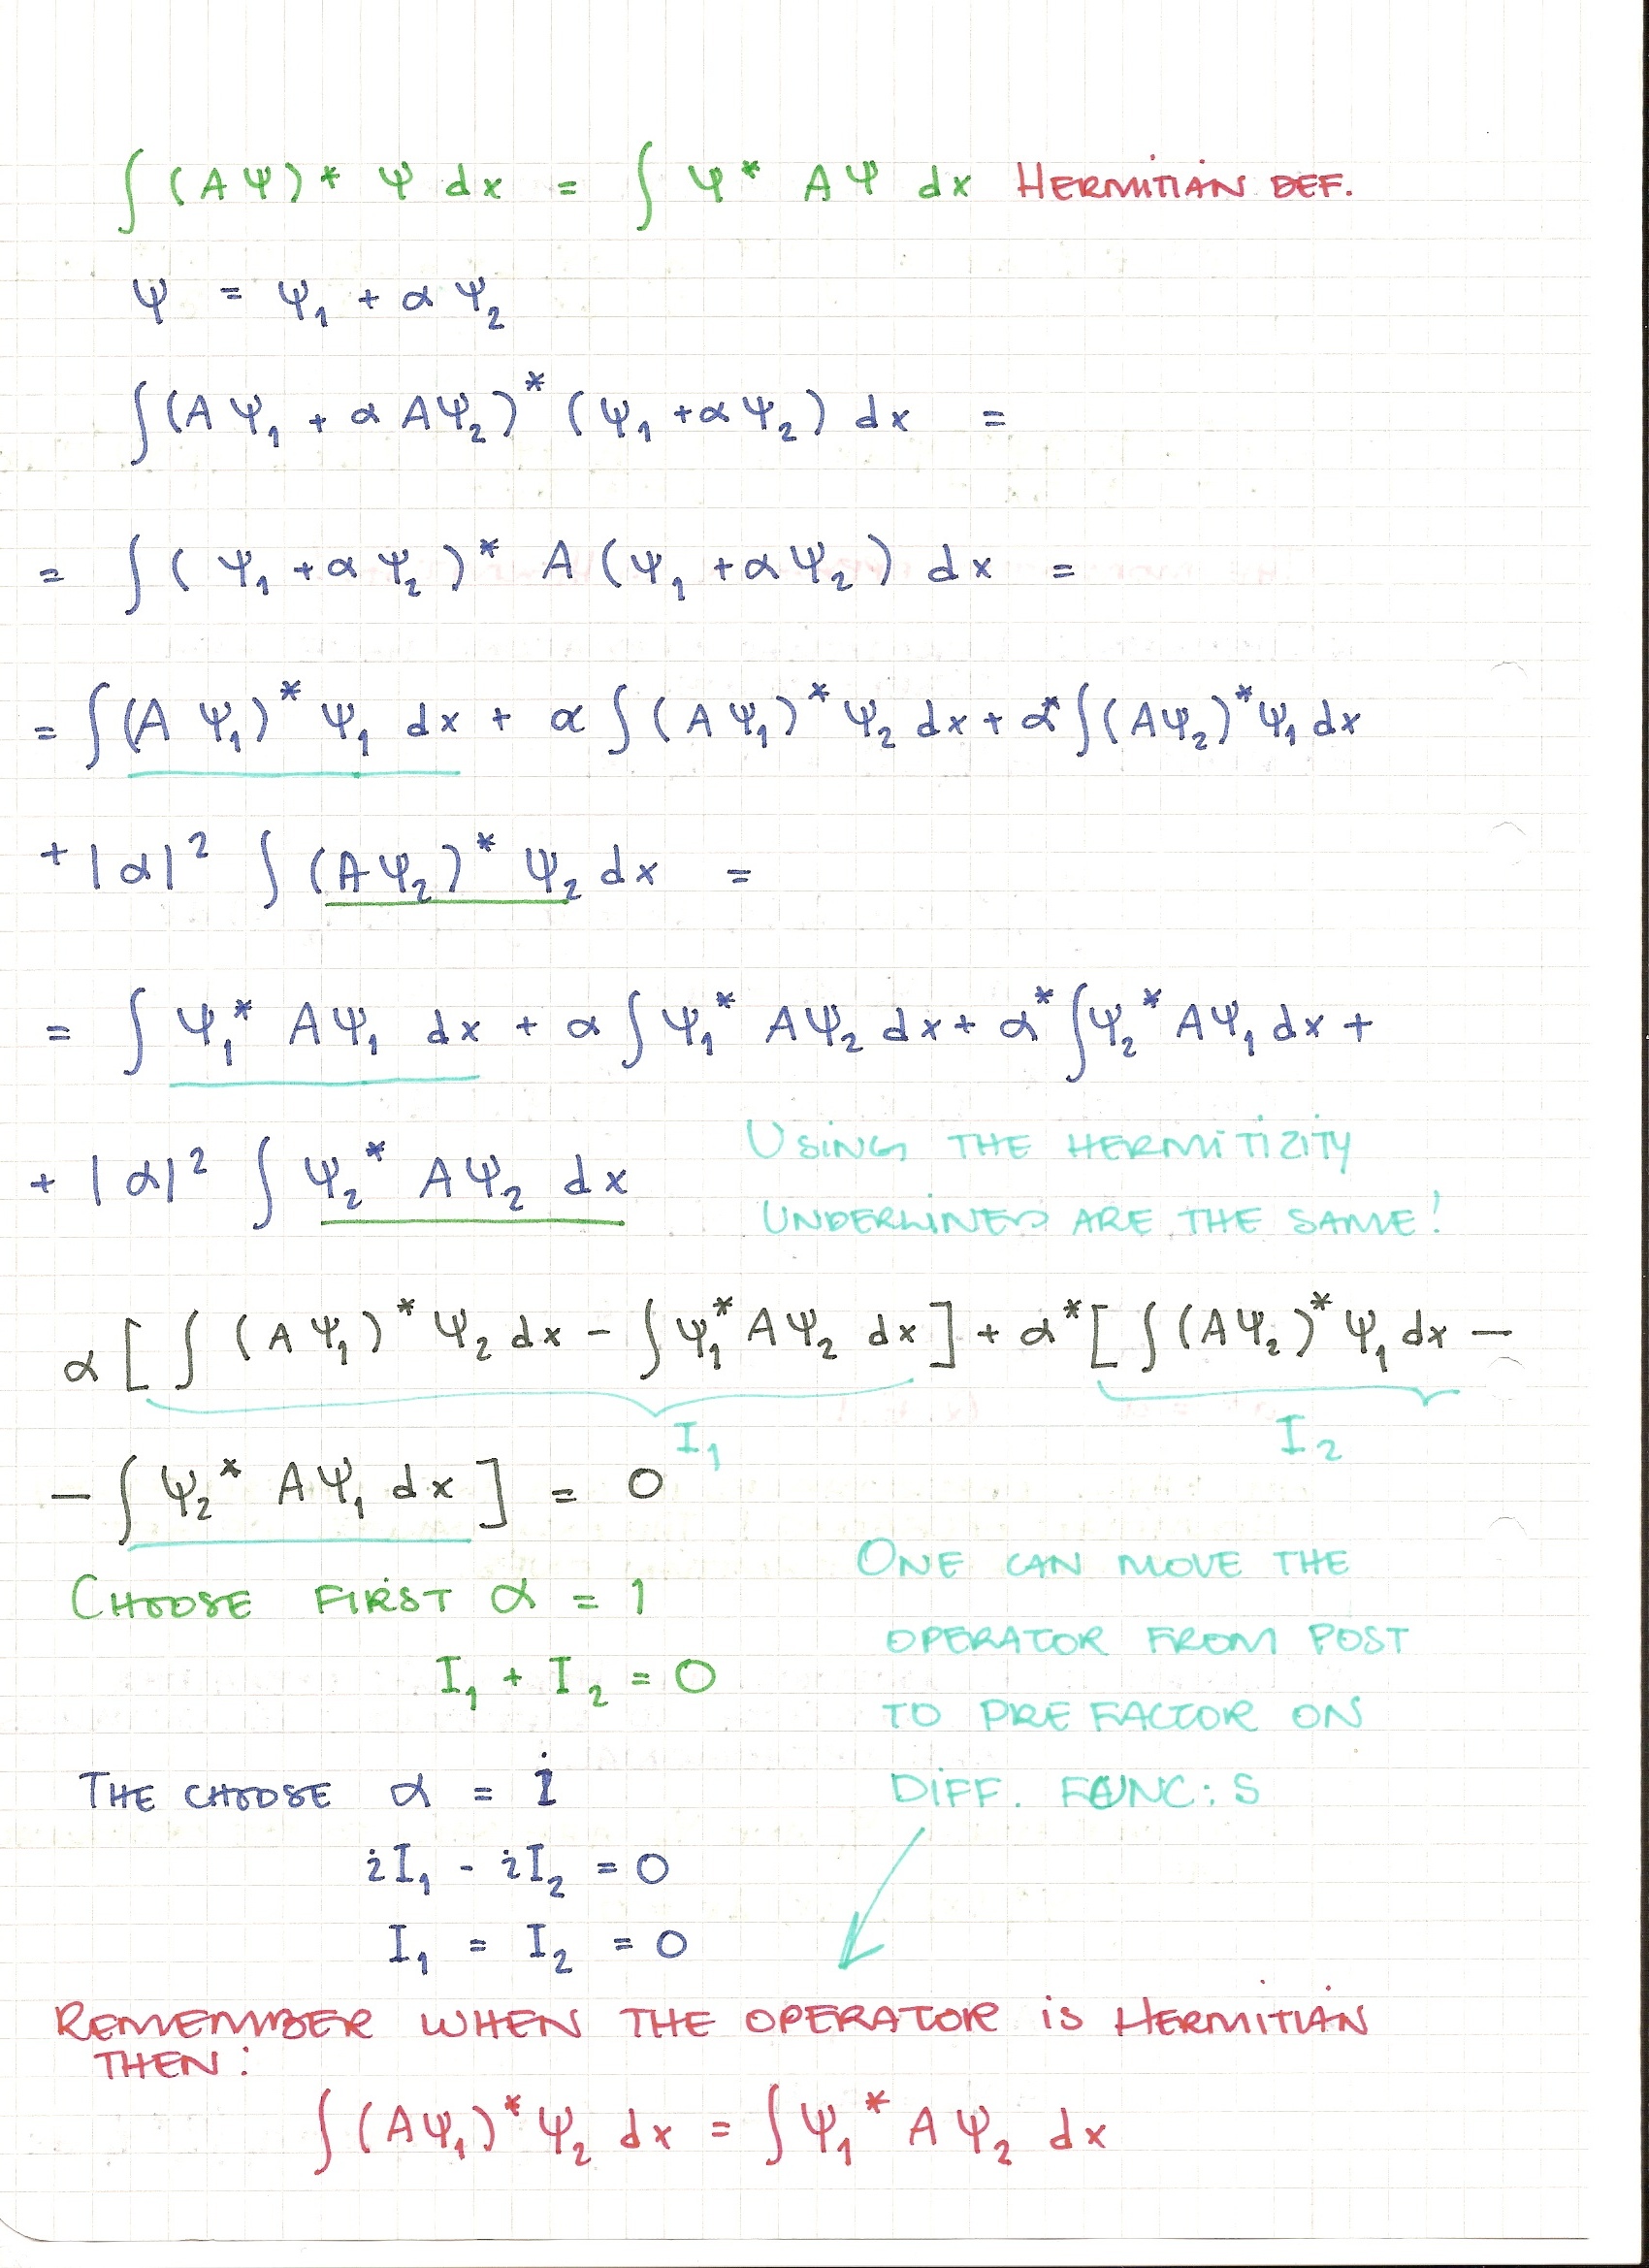 ∫ (AΨ)* Ψ dx = ∫ Ψ* AΨ dx HERMITIAN DEF.
Ψ = Ψ₁ + αΨ₂
∫ (AΨ₁ + αAΨ₂)* (Ψ₁ + αΨ₂) dx =
= ∫ (Ψ₁ + αΨ₂)* A(Ψ₁ + αΨ₂) dx =
= ∫ (AΨ₁)* Ψ₁ dx + α ∫ (AΨ₁)* Ψ₂ dx + α* ∫ (AΨ₂)* Ψ₁ dx
+ |α|² ∫ (AΨ₂)* Ψ₂ dx =
= ∫ Ψ₁* AΨ₁ dx + α ∫ Ψ₁* AΨ₂ dx + α* ∫ Ψ₂* AΨ₁ dx +
+ |α|² ∫ Ψ₂* AΨ₂ dx
USING THE HERMITIZITY
UNDERLINED ARE THE SAME!
α [ ∫ (AΨ₁)* Ψ₂ dx - ∫ Ψ₁* AΨ₂ dx ] + α* [ ∫ (AΨ₂)* Ψ₁ dx —
I₁ I₂
— ∫ Ψ₂* AΨ₁ dx ] = 0
CHOOSE FIRST α = 1
I₁ + I₂ = 0
THE CHOOSE α = i
iI₁ - iI₂ = 0
I₁ = I₂ = 0
ONE CAN MOVE THE
OPERATOR FROM POST
TO PRE FACTOR ON
DIFF. FUNC:S
REMEMBER WHEN THE OPERATOR IS HERMITIAN
THEN:
∫ (AΨ₁)* Ψ₂ dx = ∫ Ψ₁* AΨ₂ dx